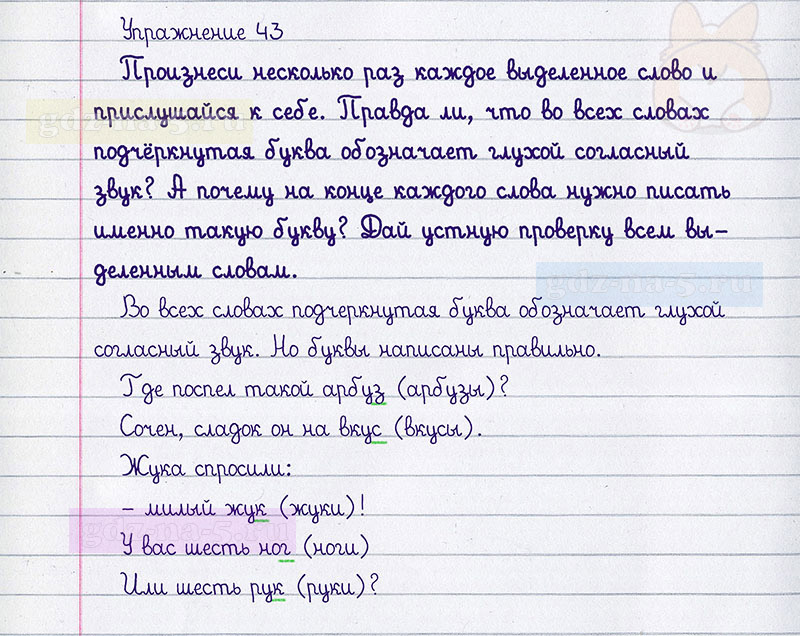 Упражнение 43
Произнеси несколько раз каждое выделенное слово и
прислушайся к себе. Правда ли, что во всех словах
подчёркнутая буква обозначает глухой согласный
звук? А почему на конце каждого слова нужно писать
именно такую букву? Дай устную проверку всем вы-
деленным словам.
Во всех словах подчеркнутая буква обозначает глухой
согласный звук. Но буквы написаны правильно.
Где поспел такой арбуз (арбузы)?
Сочен, сладок он на вкус (вкусы).
Жука спросили:
– милый жук (жуки)!
У вас шесть ног (ноги)
Или шесть рук (руки)?
gdz-na-5.ru
gdz-na-5.ru
gdz-na-5.ru